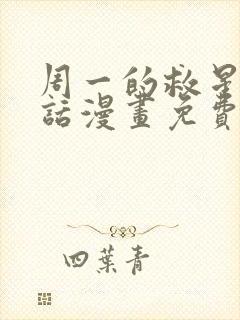 周一的救星
話漫畫免費
四葉青